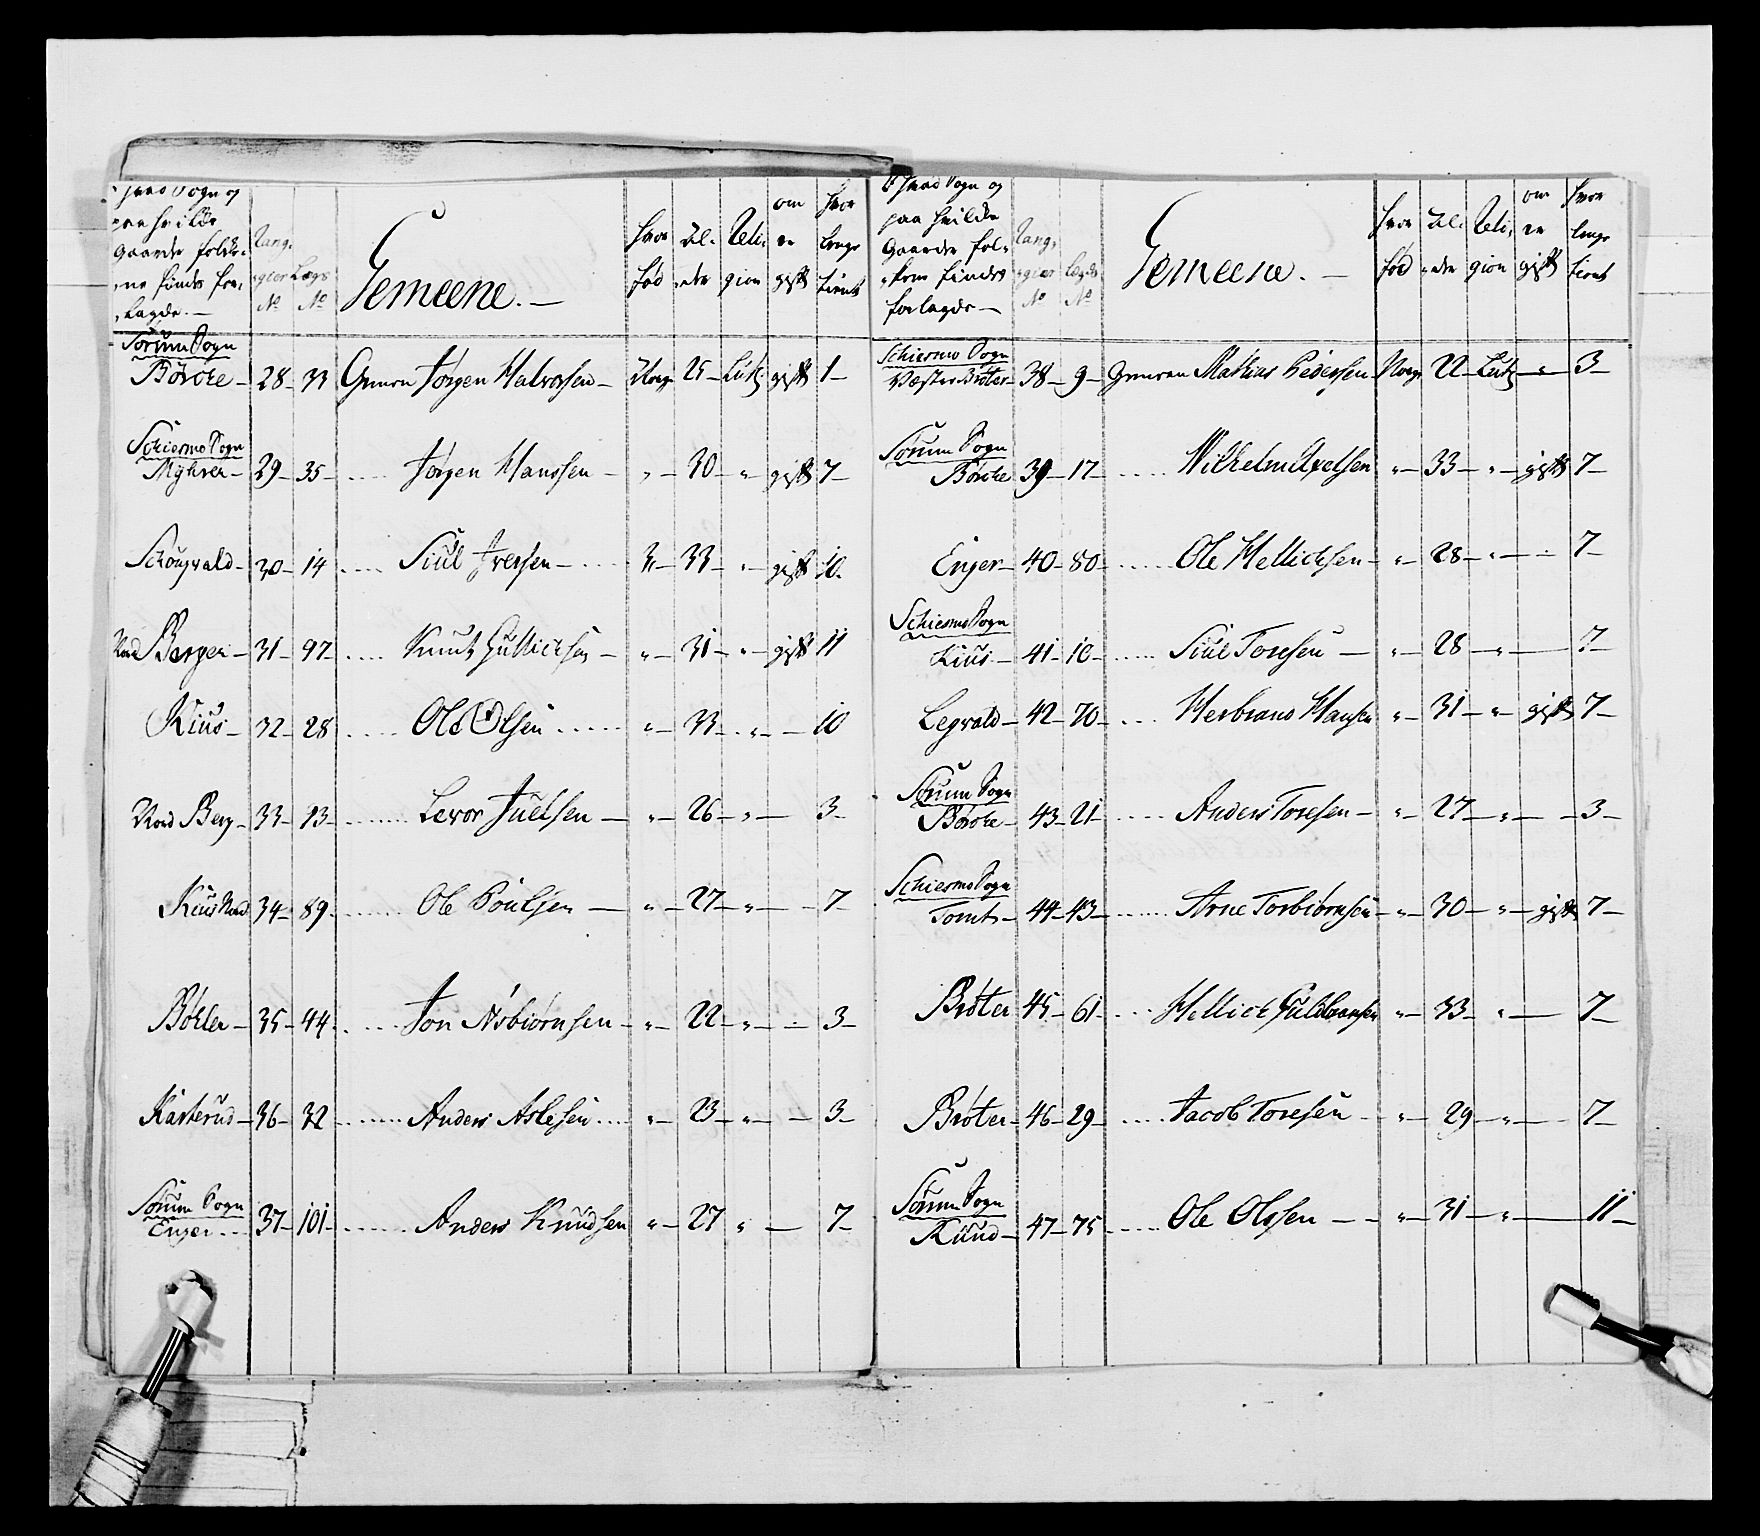 hvad Sogn og
paa hvilke
Gaarde folke-
ne findes for-
lagde.
Rang-
gier
No
Lægs
No
Gemeene.
hvor
fød
Al-
der
Reli-
gion
om
er
gift
hvor
lenge
tient
Sørum Sogn
Børcke 28 33 Gemeen Jørgen Halvorsen Norge 25 Luth. gift 1
Schiermo Sogn
Myhren 29 35 Jørgen Hanssen " 30 " gift 7
Schougvald 30 14 Siul Iversen " 33 " gift 10
Nord Bergen 31 97 Knud Gullichsen " 31 " gift 11
Kius 32 28 Ole Olsen " 33 " 10
Nord Berg 33 93 Levor Juelsen " 26 " 3
Kius Nord 34 89 Ole Poulsen " 27 " 7
Bøhler 35 44 Jon Asbiørnsen " 22 " 3
Kasterud 36 32 Anders Aslesen " 23 " 3
Sørum Sogn
Enger 37 101 Anders Knudsen " 27 " 7
hvad Sogn og
paa hvilke
Gaarde fol-
kene findes
forlagde
Rang-
gier
No
Lægds
No
Gemeene.
hvor
fød
Al-
der
Reli-
gion
om
er
gift
hvor
lenge
tient
Schiermo Sogn
Væster Brøter 38 9 Gemeen Mathias Pedersen Norge 22 Luth " 3
Sørum Sogn
Børcke 39 17 Wilhelm Axelsen " 33 " gift 7
Enger 40 80 Ole Hellichsen " 28 " 7
Schiermo Sogn
Kius 41 10 Siul Toresen " 28 " 7
Legvald 42 70 Herbrand Hansen " 31 " gift 7
Sørum Sogn
Børcke 43 21 Anders Toresen " 27 " 3
Schiermo Sogn
Tomt 44 43 Arne Torbiørnsen " 30 " gift 7
Brøter 45 61 Hellich Guldbransen " 33 " 7
Brøter 46 29 Jacob Toresen " 29 " 7
Sørum Sogn
Kiund 47 75 Ole Olssen " 31 " 11